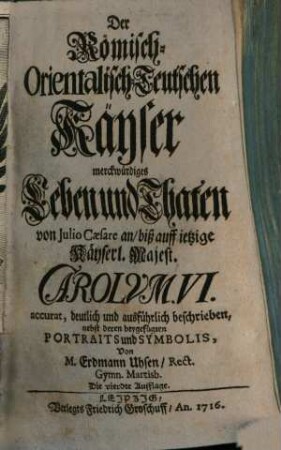 Der
Römisch-
Orientalisch-Teutschen
Käyser
merckwürdiges
Leben und Thaten
von Julio Cæsare an/ biß auff ietzige
Käyserl. Majest.
CAROLVM. VI.
accurat, deutlich und ausführlich beschrieben,
nebst deren beygefügten
PORTRAITS und SYMBOLIS,
Von
M. Erdmann Uhsen/ Rect.
Gymn. Martisb.
Die vierdte Aufflage.
LEIPZIG/
Verlegts Friedrich Groschuff/ An. 1716.